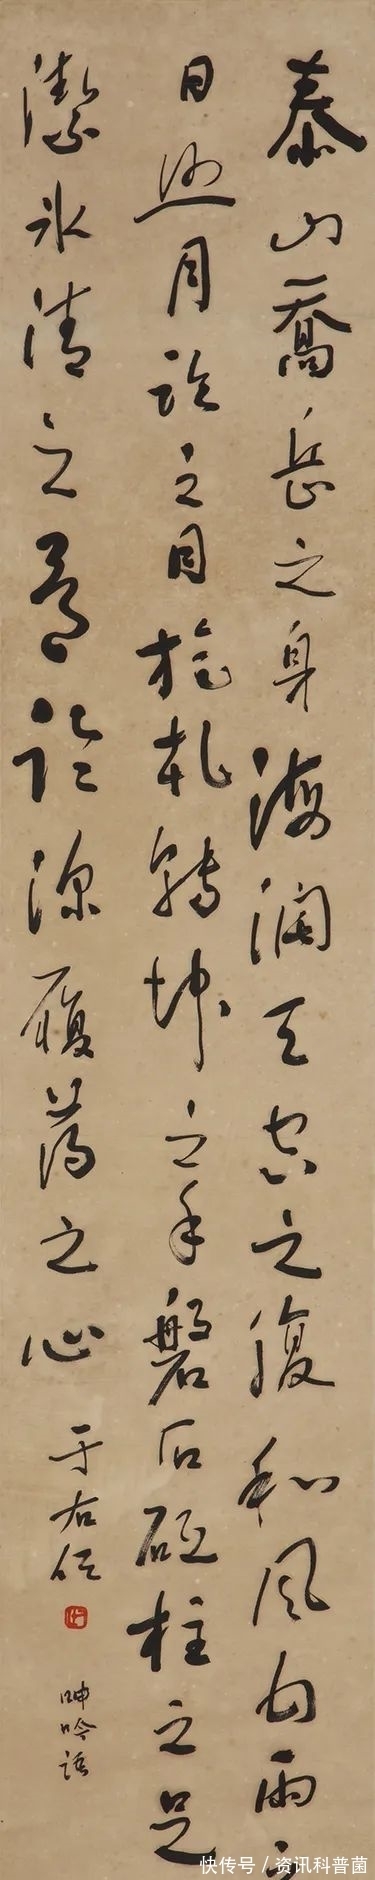 泰山喬岳之身海闊天空之腹和風甘雨之
日照月臨之目旋乾轉坤之手磐石砥柱之足
潔冰清之骨臨深履薄之心
于右任
呻吟語
快传号/资讯科普菌